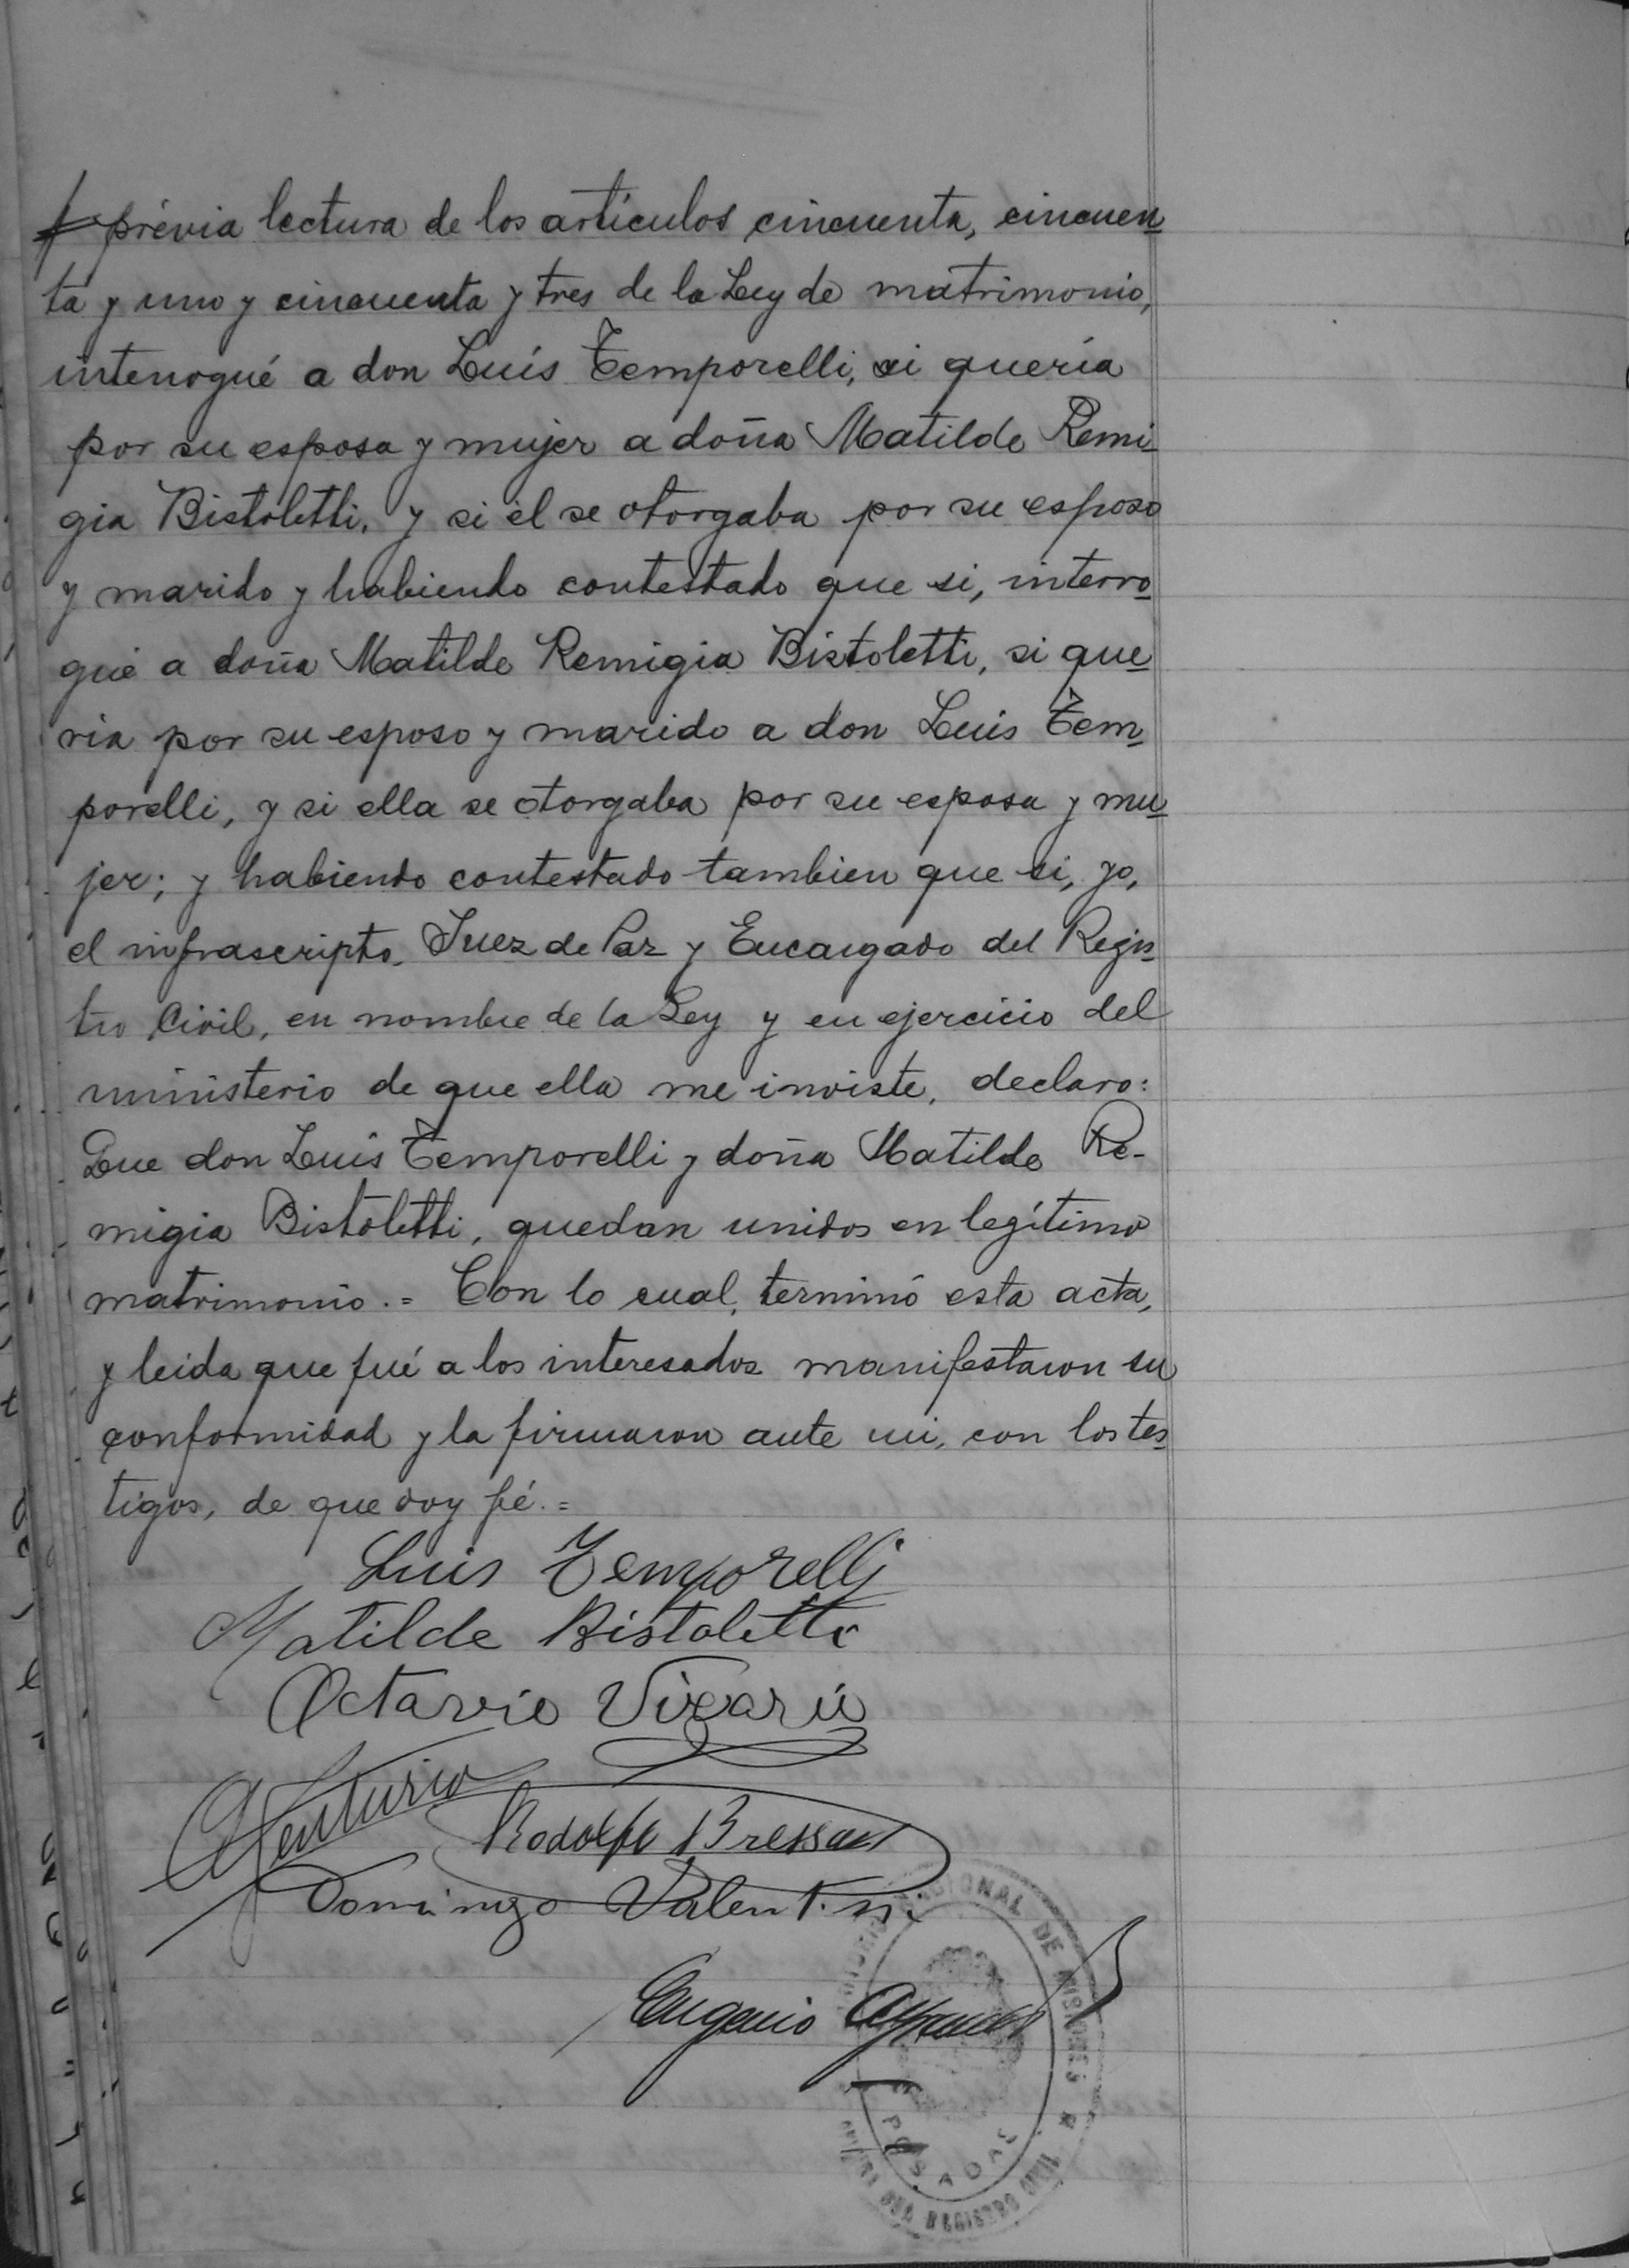 prévia lectura de los artículos cincuenta, cincuen
ta y uno y cincuenta y tres de la Ley de matrimonio,
interrogué a don Luís Temporelli, si quería
por su esposa y mujer a doña Matilde Remi
gia Bistoletti, y si él se otorgaba por su esposo
y marido y habiendo contestado que si, interro
gué a doña Matilde Remigia Bistoletti, si que
ria por su esposo y marido a don Luis Tem
porelli, y si ella se otorgaba por su esposa y mu
jer; y habiendo contestado tambien que si, yo,
el infrascripto Juez de Paz y Encargado del Regis
tro Civil, en nombre de la Ley y en ejercicio del
ministerio de que ella me inviste, declaro:
Que don Luis Temporelli y doña Matilde Re-
migia Bistoletti, quedan unidos en legítimo
matrimonio.= Con lo cual, terminó esta acta,
y leida que fué a los interesados manifestaron su
conformidad y la firmaron ante mi, con los tes
tigos, de que doy fé.=
Luis Temporelli
Matilde Bistoletti
Octavio
Rodolfo Bressan
Domingo Valentin
Eugenio
NACIONAL DE MISIONES
POSADAS
REGISTRO CIVIL